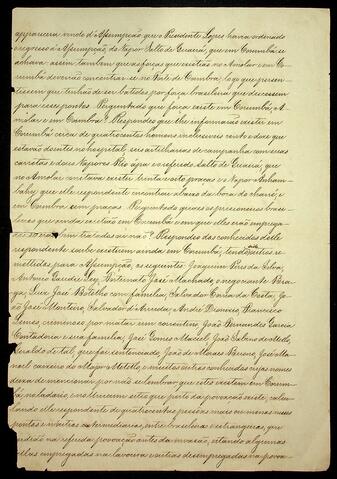 apparecera vindo d'Assumpção, que o Presidente Lopes havia ordenado
o regresso á Assumpção, do Vapor Salto de Guairá, que em Corumbá se
achava, assim tambem que as forças que existião no Amolar e em Co-
rumbá deverião concentrar-se no Forte de Coimbra, logo que presen-
tissem que tenhão de ser batidos por força brasileira que descessem
para esses pontos. Perguntado que força existe em Corumbá, A-
molar e em Coimbra? Respondeo que elle informante existir em
Corumbá cerca de quatrocentos homens inclusives cento e dous que
estavão doentes no hospital, seis artilharias de campanha com suas
carretas e dous Vapores Rio Apa e referido Salto de Guairá, que
no Amolar constava existir trinta e oito praças e o Vapor Anham-
bahy que elle respondente encontrou abaixo da boca do chané, e
em Coimbra cem praças. Perguntado quaes os prisioneiros brasi-
leiros que ainda existião em Corumbá e em que ellas erão emprega-
dos se erão bem tratados ou não? Respondeo dos conhecidos delle
respondente sabe existirem ainda em Corumbá, tendo sido outros re-
mettidos para Assumpção, os seguintes Joaquim Pires da Silva,
Antonio Gaudie Ley, Fortunato José Machado, o negociante Bra-
ga, Luiz José Botelho com familia, Salvador Corrêa da Costa, Jo-
ão José Monteiro, Salvador d'Arruda, André Dionizio, Francisco
Lemes, criminoso por matar um correntino, João Fernandes Garcia
Contadoria e sua familia, José Gomes Maciel, João Sabino de Mello,
Geraldo de tal, que foi sentenciado, João de Moraes Bueno, José Ma-
noel carreiro do Major Metello, e muitos outros conhecidos cujos nomes
deixa de mencionar por não se lembrar que estes existem em Corum-
bá, no ladario, e no Urucum sitio que perto da provoação existe, calcu-
lando elle respondente de quatrocentas pessôas mais ou menos nesses
pontos e n'outros intermediarios, entre brasileiros e estrangeiros, que
residião na referida provoação antes da invasão, estando algumas
dellas empregadas na lavoura e outras desempregadas na provoa-